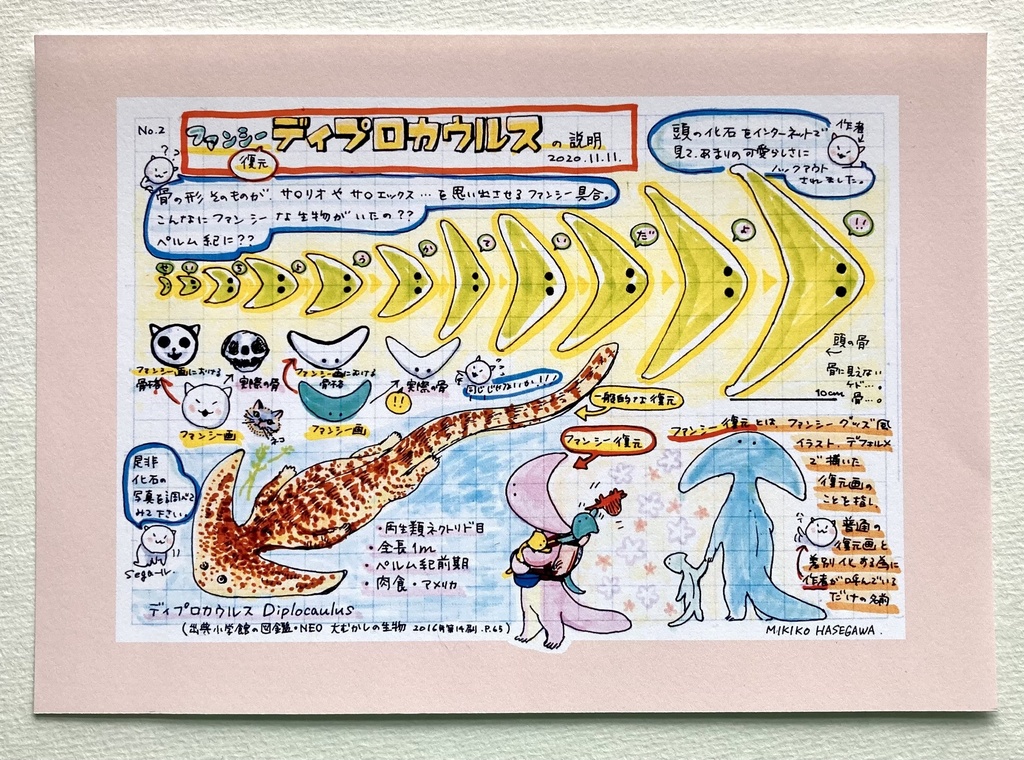 No.2
ファンシー ディプロカウルス の説明
復元
2020.11.11.
頭の化石をインターネットで
見て、あまりの可愛らしさに
ノックアウト
されました。
作者
骨の形そのものが、サ○リオやサ○エックス…を思い出させるファンシー具合。
こんなにファンシーな生物がいたの??
ペルム紀に??
せいちょうかていだよ!!
頭の骨
骨に見えない
ケド…。
骨…。
10cm
ファンシー画における
骨格
実際の骨
ファンシー画における
骨格
実際の骨
同じじゃないか!!!
!!
ファンシー画
ネコ
ファンシー画
一般的な復元
ファンシー復元
是非
化石の
写真を調べて
みて下さい。
Segaール.
・両生類ネクトリド目
・全長1m
・ペルム紀前期
・肉食・アメリカ
ファンシー復元とは、ファンシーグッズ風
イラスト、デフォルメ
で描いた
復元画の
ことを指し、
普通の
復元画と
差別化する為に
作者が呼んでいる
だけの名前
ディプロカウルス Diplocaulus
(出典小学館の図鑑・NEO 大むかしの生物 2016年第14刷.P.65)
MIKIKO HASEGAWA.